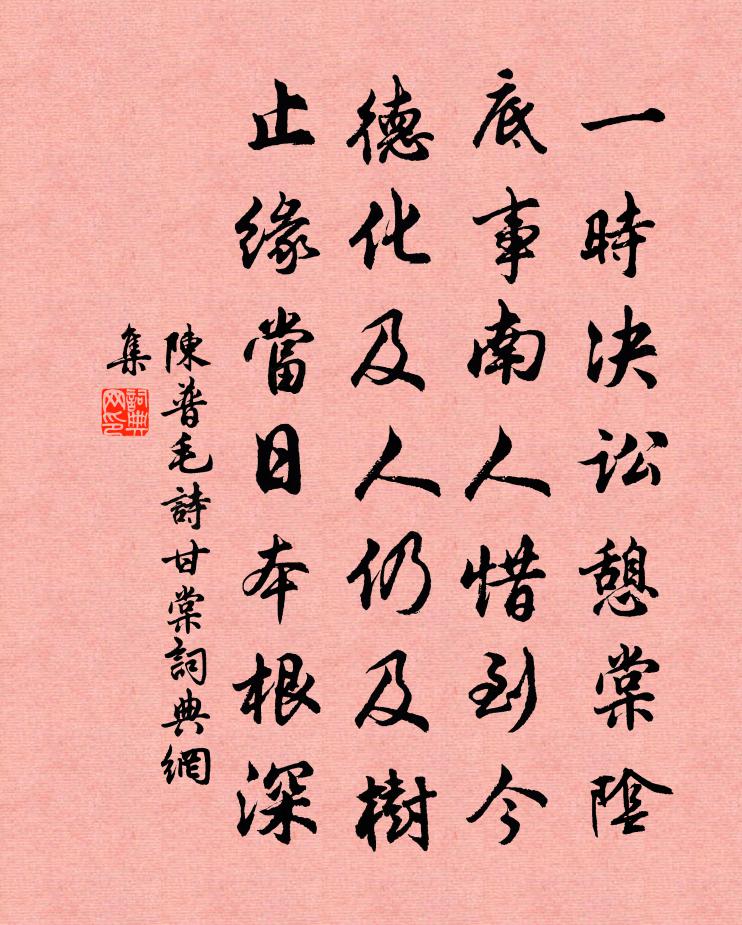 一時決訟憩棠陰
底事南人惜到今
德化及人仍及樹
止緣當日本根深
陳普毛詩甘棠詞典網
集
詞典
网印